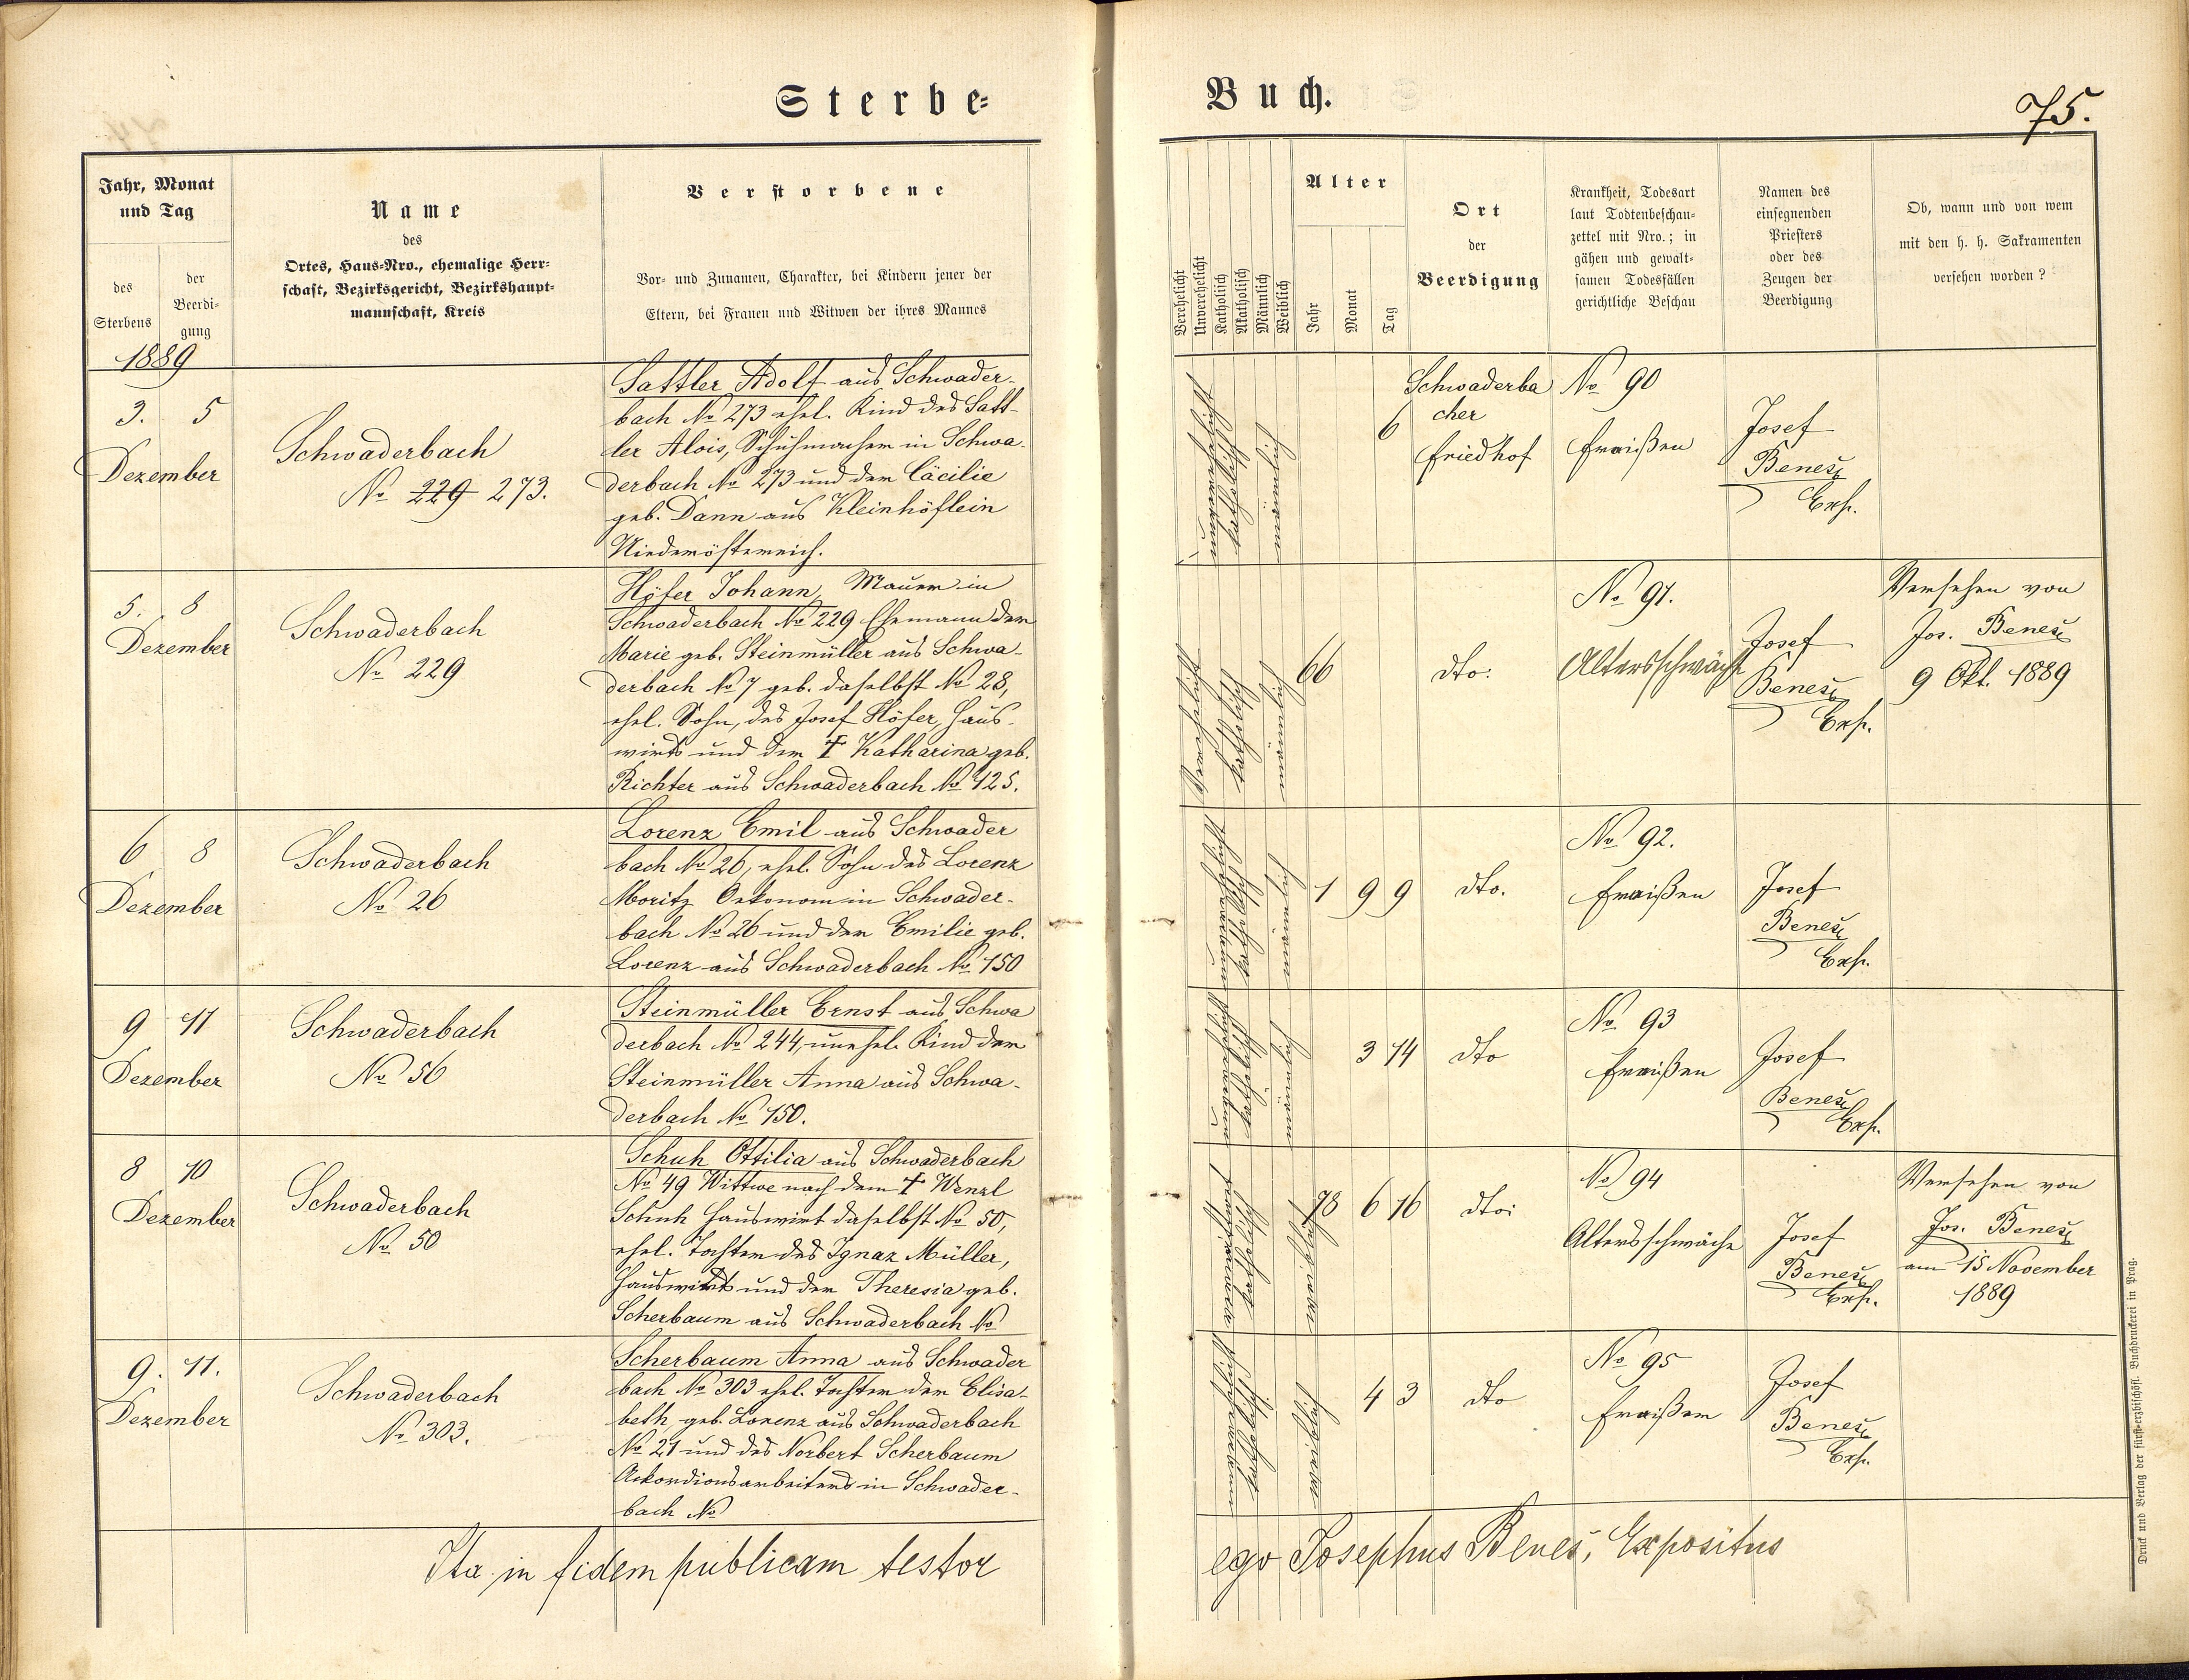 Sterbe-
Buch.
75.
Jahr, Monat
und Tag
des
Sterbens
der
Beerdi-
gung
Name
des
Ortes, Haus-Nro., ehemalige Herr-
schaft, Bezirksgericht, Bezirkshaupt-
mannschaft, Kreis
Verstorbene
Vor- und Zunamen, Charakter, bei Kindern jener der
Eltern, bei Frauen und Witwen der ihres Mannes
Verehelicht
Unverehelicht
Katholisch
Akatholisch
Männlich
Weiblich
Alter
Jahr
Monat
Tag
Ort
der
Beerdigung
Krankheit, Todesart
laut Todtenbeschau-
zettel mit Nro.; in
gähen und gewalt-
samen Todesfällen
gerichtliche Beschau
Namen des
einsegnenden
Priesters
oder des
Zeugen der
Beerdigung
Ob, wann und von wem
mit den h. h. Sakramenten
versehen worden?
1889
3. 5
Dezember
Schwaderbach
No 229 273.
Sattler Adolf aus Schwader-
bach No 273 ehel. Kind des Satt-
ler Alois, Schuhmacher in Schwa-
derbach No 273 und der Cäcilie
geb. Dann aus Kleinhöflein
Niederösterreich.
unverehelicht
katholisch
männlich
6
Schwaderba
cher
Friedhof
No 90
Fraißen
Josef
Beneš
Exp.
5. 8
Dezember
Schwaderbach
No 229
Höfer Johann, Maurer in
Schwaderbach No 229 Ehemann der
Marie geb. Steinmüller aus Schwa-
derbach No 7 geb. daselbst No 28,
ehel. Sohn, des Josef Höfer, Haus-
wirts und der † Katharina geb.
Richter aus Schwaderbach No 125.
Verehelicht
katholisch
männlich
66
dto:
No 91.
Altersschwäche
Josef
Beneš
Exp.
Versehen von
Jos. Beneš
9 Okt. 1889
6 8
Dezember
Schwaderbach
No 26
Lorenz Emil aus Schwader
bach No 26, ehel. Sohn des Lorenz
Moritz Oekonom in Schwader-
bach No 26 und der Emilie geb.
Lorenz aus Schwaderbach No 150
unverehelicht
katholisch
männlich
1 9 9
dto.
No 92.
Fraißen
Josef
Beneš
Exp.
9 11
Dezember
Schwaderbach
No 56
Steinmüller Ernst aus Schwa
derbach No 244, unehel. Kind der
Steinmüller Anna aus Schwa-
derbach No 150.
unverehelicht
katholisch
männlich
3 14
dto
No 93
Fraißen
Josef
Beneš
Exp.
8 10
Dezember
Schwaderbach
No 50
Schuh Ottilia aus Schwaderbach
No 49 Wittwe nach dem † Wenzl
Schuh Hauswirt daselbst No 50,
ehel. Tochter des Ignaz Müller,
Hauswirts und der Theresia geb.
Scherbaum aus Schwaderbach No
katholisch
weiblich
78 6 16
dto:
No 94
Altersschwäche
Josef
Beneš
Exp.
Versehen von
Jos. Beneš
am 15 November
1889
9. 11.
Dezember
Schwaderbach
No 303.
Scherbaum Anna aus Schwader
bach No 303 ehel. Tochter der Elisa-
beth geb. Lorenz aus Schwaderbach
No 21 und des Norbert Scherbaum
Ackordionsarbeiters in Schwader-
bach No
unverehelicht
katholisch
weiblich
4 3
dto
No 95
Fraißen
Josef
Beneš
Exp.
Ita in fidem publicam testor
ego Josephus Beneš, Expositus
Druck und Verlag der fürst-erzbischöfl. Buchdruckerei in Prag.